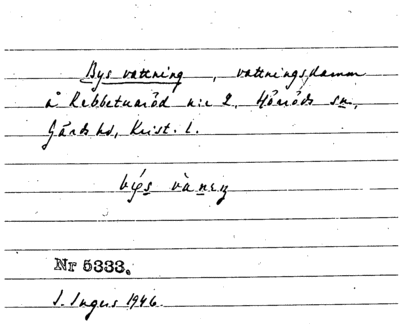 Bys vattning, vattningsdamm
å Rebbetuaröd n:r 2, Hörröds sn,
Gärds hd, Krist. l.
Nr 5333.
S. Ingers 1946.